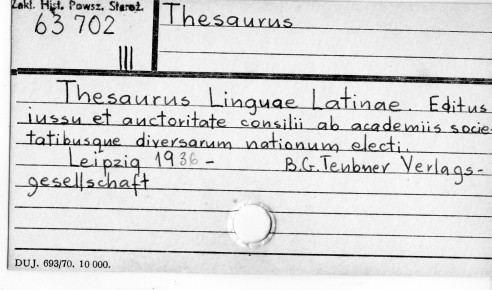 Zakł. Hist. Powsz. Staroż.
63 702
III
Thesaurus
Thesaurus Linguae Latinae. Editus
iussu et auctoritate consilii ab academiis socie-
tatibusque diversarum nationum electi.
Leipzig 1936 - B.G. Teubner Verlags-
gesellschaft
DUJ. 693/70. 10 000.